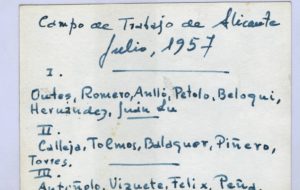 Campo de Trabajo de Alicante
Julio, 1957
I.
Outes, Romero, Aulló, Petolo, Beloqui,
Hernández, Juán Lu
II.
Calleja, Tolmos, Balaguer, Piñero,
Torres.
III.
Antiñolo, Vizuete, Felix, Peña